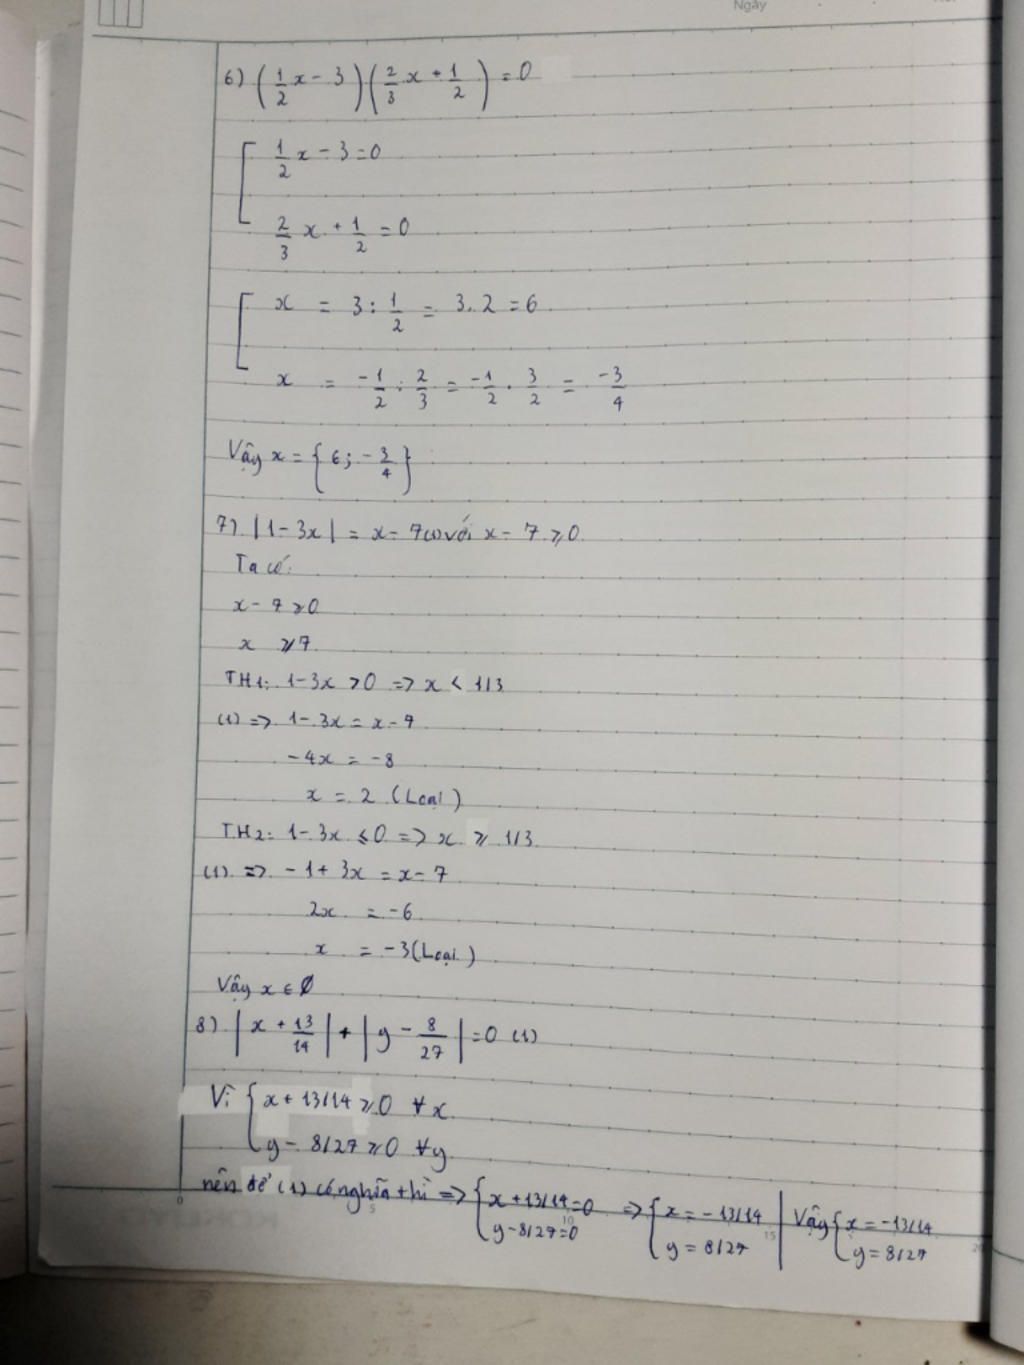 Ngày
6) (1/2 x - 3)(2/3 x + 1/2) = 0
[ 1/2 x - 3 = 0
2/3 x + 1/2 = 0
[ x = 3 : 1/2 = 3.2 = 6
x = -1/2 : 2/3 = -1/2 . 3/2 = -3/4
Vậy x = {6; -3/4}
7) |1 - 3x| = x - 7 (1) với x - 7 ⩾ 0
Ta có:
x - 7 ⩾ 0
x ⩾ 7
TH1: 1 - 3x > 0 => x < 1/3
(1) => 1 - 3x = x - 7
-4x = -8
x = 2 (Loại)
TH2: 1 - 3x ⩽ 0 => x ⩾ 1/3
(1) => -1 + 3x = x - 7
2x = -6
x = -3 (Loại)
Vậy x ∈ ∅
8) |x + 13/14| + |y - 8/27| = 0 (1)
Vì { x + 13/14 ⩾ 0 ∀x
y - 8/27 ⩾ 0 ∀y
nên để (1) có nghĩa thì => { x + 13/14 = 0 => { x = -13/14 | Vậy { x = -13/14
y - 8/27 = 0 y = 8/27 y = 8/27
0 5 10 15 20